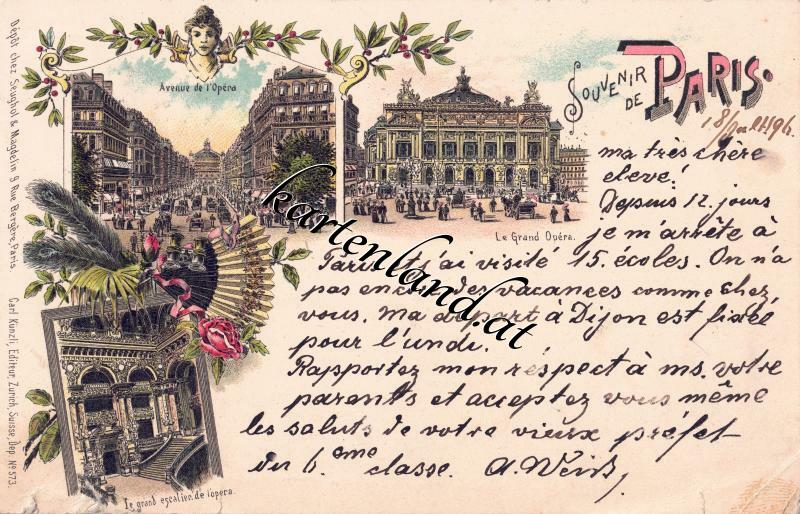 SOUVENIR
DE
PARIS.
Avenue de l'Opéra
Le Grand Opéra.
ma très chère
eleve!
Depuis 12. jours
je m'arrête à
Paris et j'ai visité 15. écoles. On n'a
pas encore des vacances comme chez
vous. ma départ à Dijon est fixée
pour l'undi.
Rapportez mon respect à ms. votre
parents et acceptez vous même
les saluts de votre vieux préfet
du 6eme classe. A. Weiß
Le grand escalier de l'opera.
Dépôt chez Seughol & Magdelin 9 Rue Bergère, Paris.
Carl Künzli, Editeur, Zürich, Suisse, Dép. No 573.
kartenland.at